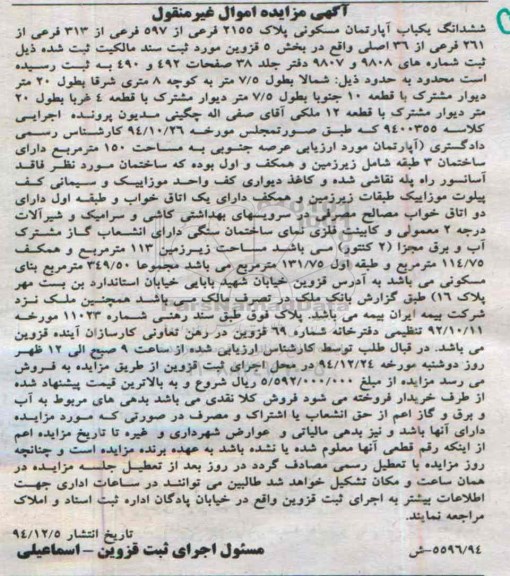 آگهی مزایده اموال غیرمنقول
ششدانگ یکباب آپارتمان مسکونی پلاک ۲۱۵۵ فرعی از ۵۹۷ فرعی از ۳۱۳ فرعی از
۲۶۱ فرعی از ۳۶ اصلی واقع در بخش ۵ قزوین مورد ثبت سند مالکیت ثبت شده ذیل
ثبت شماره های ۹۸۰۸ و ۹۸۰۷ دفتر جلد ۳۸ صفحات ۴۹۲ و ۴۹۰ به ثبت رسیده
است محدود به حدود ذیل: شمالا بطول ۷/۵ متر به کوچه ۸ متری شرقا بطول ۲۰ متر
دیوار مشترک با قطعه ۱۰ جنوبا بطول ۷/۵ متر دیوار مشترک با قطعه ۴ غربا بطول ۲۰
متر دیوار مشترک با قطعه ۱۲ ملکی آقای صفی اله چگینی مدیون پرونده اجرایی
کلاسه ۹۴۰۰۳۵۵ که طبق صورتمجلس مورخه ۹۴/۱۰/۲۶ کارشناس رسمی
دادگستری (آپارتمان مورد ارزیابی عرصه جنوبی به مساحت ۱۵۰ مترمربع دارای
ساختمان ۳ طبقه شامل زیرزمین و همکف و اول بوده که ساختمان مورد نظر فاقد
آسانسور راه پله نقاشی شده و کاغذ دیواری کف واحد موزاییک و سیمانی کف
پیلوت موزاییک طبقات زیرزمین و همکف دارای یک اتاق خواب و طبقه اول دارای
دو اتاق خواب مصالح مصرفی در سرویسهای بهداشتی کاشی و سرامیک و شیرآلات
درجه ۲ معمولی و کابینت فلزی نمای ساختمان سنگی دارای انشعاب گاز مشترک
آب و برق مجزا (۲ کنتور) می باشد مساحت زیرزمین ۱۱۳ مترمربع و همکف
۱۱۴/۷۵ مترمربع و طبقه اول ۱۳۱/۷۵ مترمربع می باشد مجموعا ۳۴۹/۵۰ مترمربع بنای
مسکونی می باشد به آدرس قزوین خیابان شهید بابایی خیابان استاندارد بن بست مهر
پلاک ۱۶) طبق گزارش بانک ملک در تصرف مالک می باشد همچنین ملک نزد
شرکت بیمه ایران بیمه می باشد. پلاک فوق طبق سند رهنی شماره ۱۱۰۲۳ مورخه
۹۲/۱۰/۱۱ تنظیمی دفترخانه شماره ۶۹ قزوین در رهن تعاونی کارسازان آینده قزوین
می باشد. در قبال طلب توسط کارشناس ارزیابی شده از ساعت ۹ صبح الی ۱۲ ظهر
روز دوشنبه مورخه ۹۴/۱۲/۲۴ در محل اجرای ثبت قزوین از طریق مزایده به فروش
می رسد مزایده از مبلغ ۵/۵۹۲/۰۰۰/۰۰۰ ریال شروع و به بالاترین قیمت پیشنهاد شده
از طرف خریدار فروخته می شود فروش کلا نقدی می باشد بدهی های مربوط به آب
و برق و گاز اعم از حق انشعاب یا اشتراک و مصرف در صورتی که مورد مزایده
دارای آنها باشد و نیز بدهی مالیاتی و عوارض شهرداری و غیره تا تاریخ مزایده اعم
از اینکه رقم قطعی آنها معلوم شده یا نشده باشد به عهده برنده مزایده است و چنانچه
روز مزایده با تعطیل رسمی مصادف گردد در روز بعد از تعطیل جلسه مزایده در
همان ساعت و مکان تشکیل خواهد شد طالبین می توانند در ساعات اداری جهت
اطلاعات بیشتر به اجرای ثبت قزوین واقع در خیابان پادگان اداره ثبت اسناد و املاک
مراجعه نمایند.
تاریخ انتشار ۹۴/۱۲/۵
۵۵۹۶/۹۴-ش مسئول اجرای ثبت قزوین – اسماعیلی